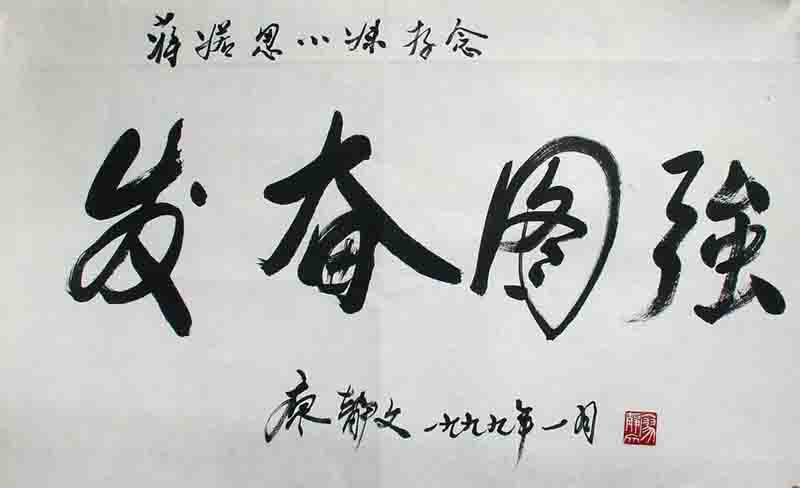 蒋婼恩小妹存念
发奋图強
廖静文 一九九九年一月